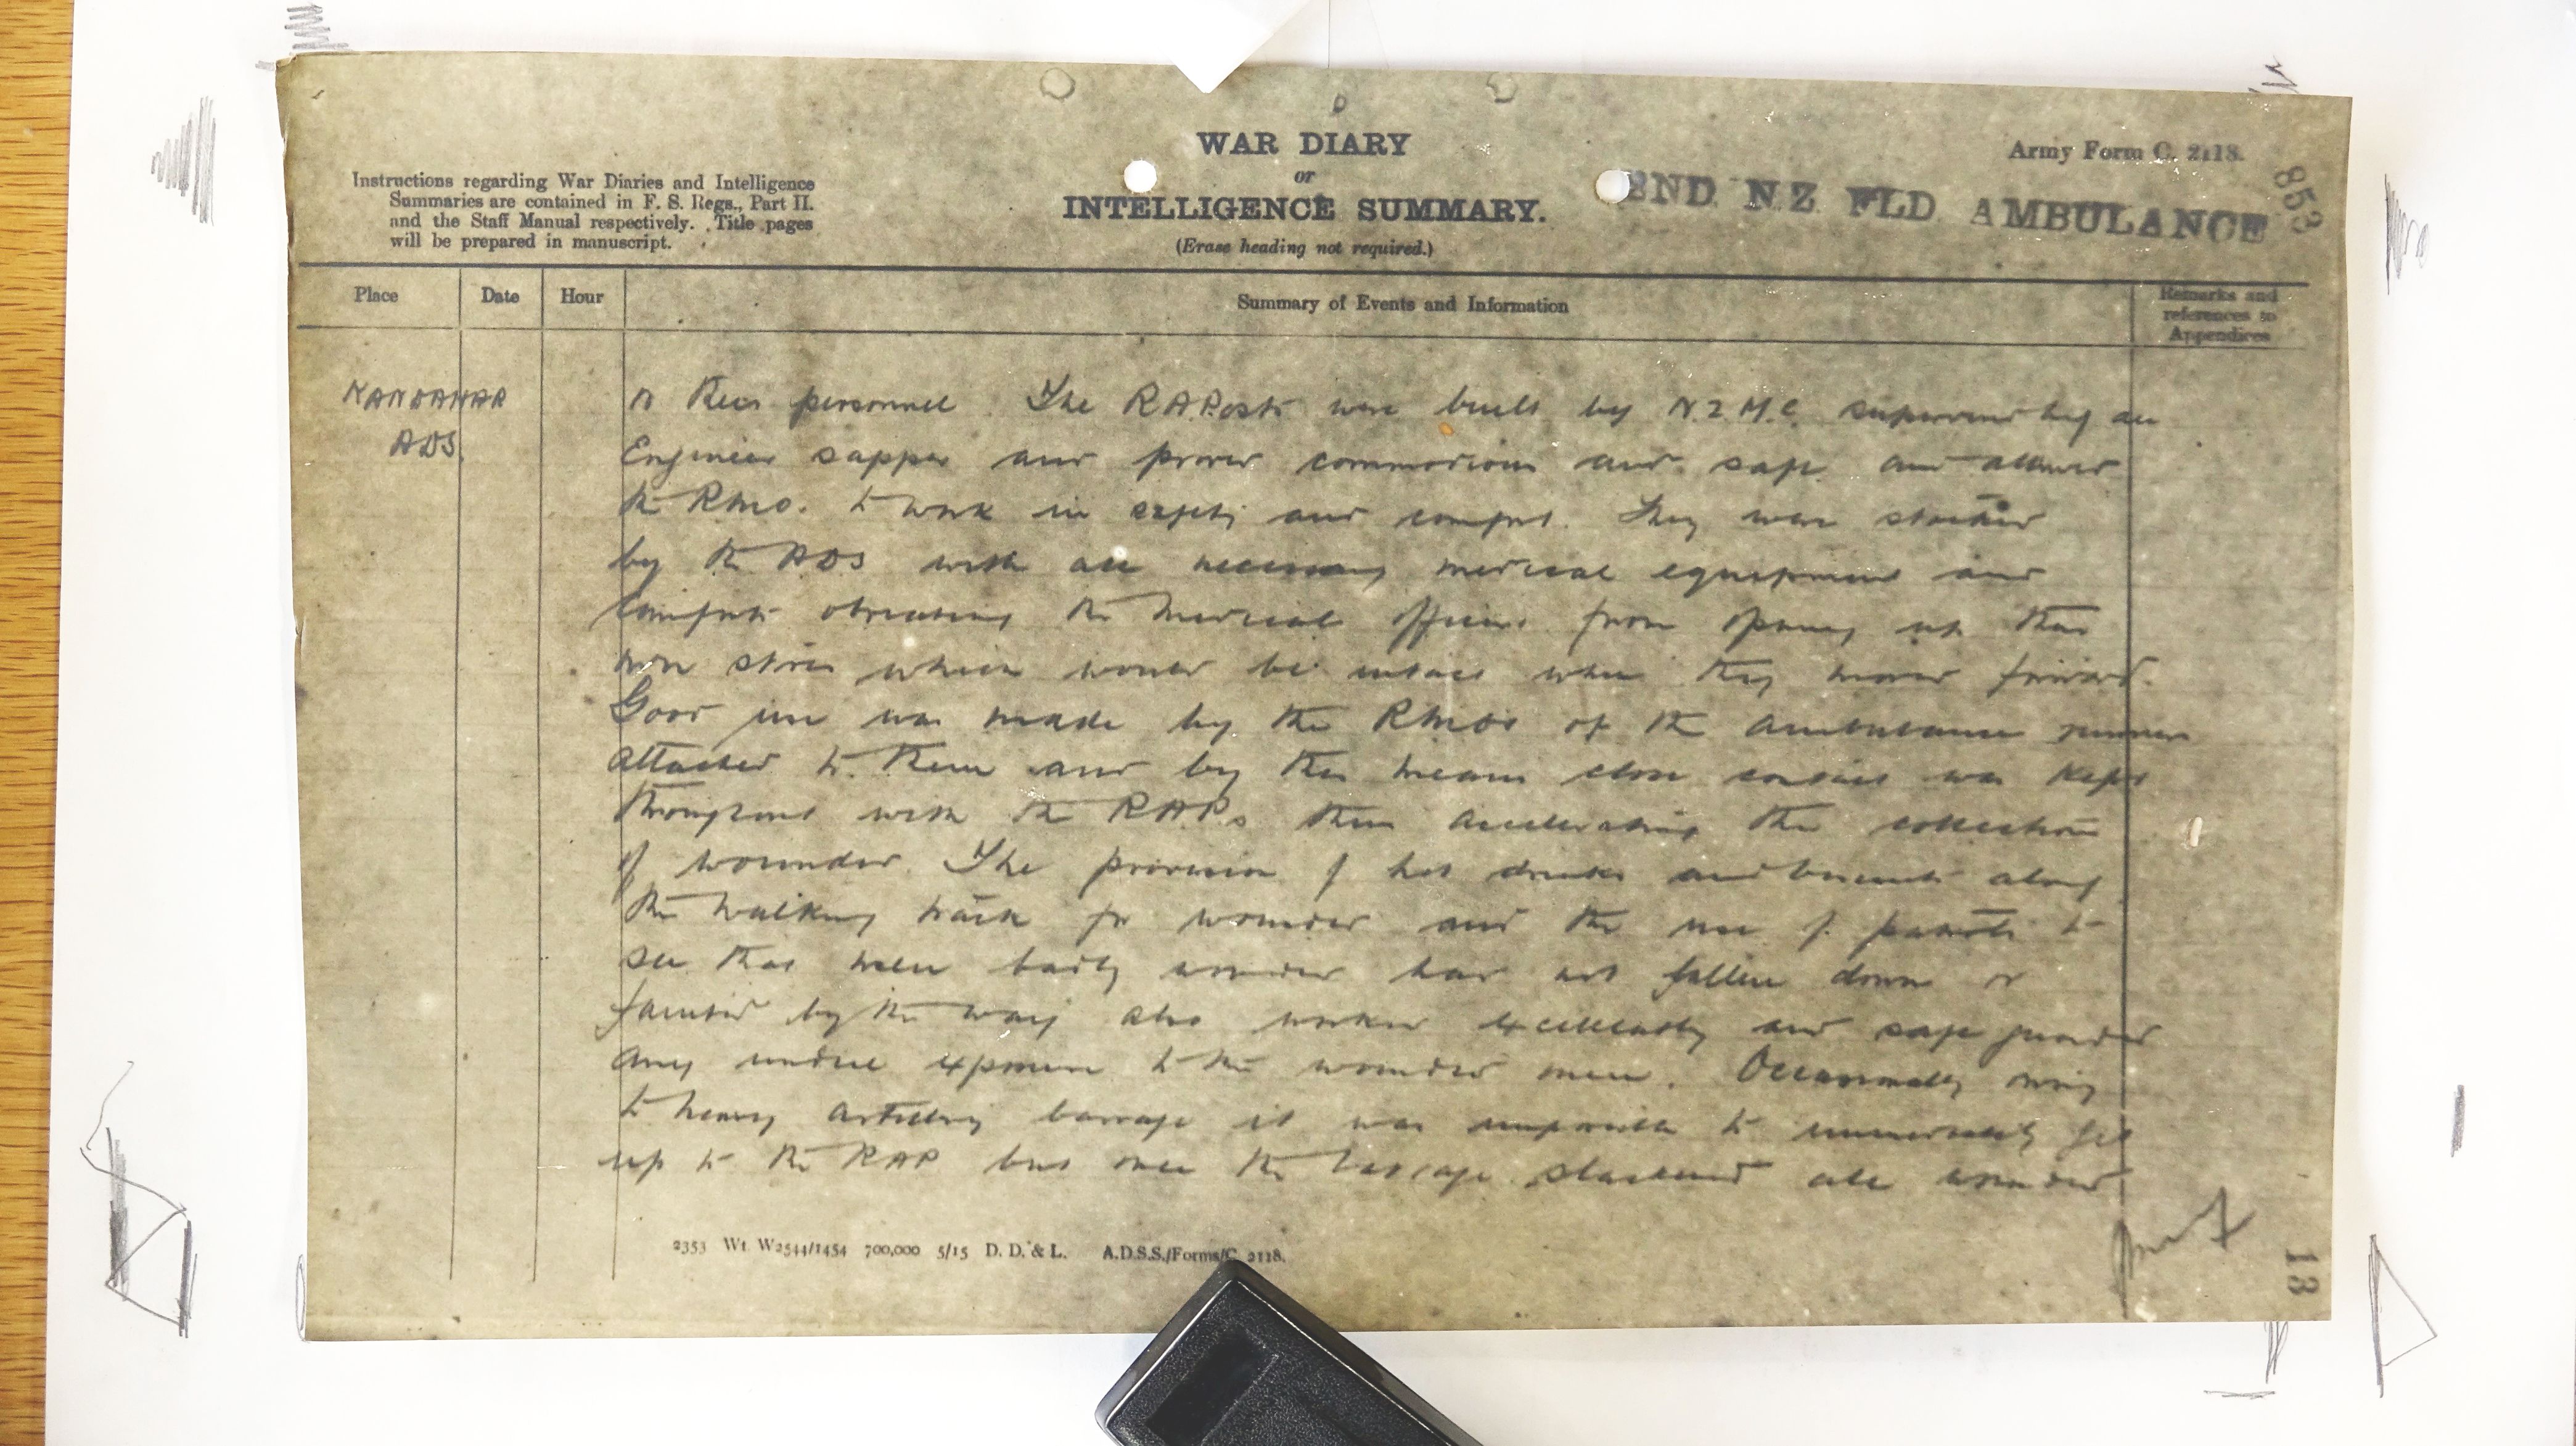 WAR DIARY
or
INTELLIGENCE SUMMARY.
(Erase heading not required.)
Army Form C. 2118.
2ND N Z FLD AMBULANCE
853
Instructions regarding War Diaries and Intelligence
Summaries are contained in F. S. Regs., Part II.
and the Staff Manual respectively. Title pages
will be prepared in manuscript.
Place
Date
Hour
Summary of Events and Information
Remarks and
references to
Appendices
KANDAHAR
ADS.
personnel. The RAPosts were built by N.Z.M.C. supervised by an
Engineer sapper and proved commodious and safe and allowed
the RMO. to work in safety and comfort. They were stocked
by the ADS with all necessary medical equipment and
comforts obviating the medical officers from opening up their
own stores which would be intact when they moved forward.
Good use was made by the RMOs of the ambulance runners
attached to them and by this means close contact was kept
throughout with the RAPs thus accelerating the collection
of wounded. The provision of hot drinks and biscuits along
the walking track for wounded and the use of patrols to
see that men badly wounded had not fallen down or
fainted by the way also worked excellently and safe guarded
any undue exposure to the wounded men. Occasionally owing
to heavy artillery barrage it was impossible to immediately get
up to the RAP but once the barrage slackened all wounded
2353 Wt. W2544/1454 700,000 5/15 D. D. & L. A.D.S.S./Forms/C. 2118.
13